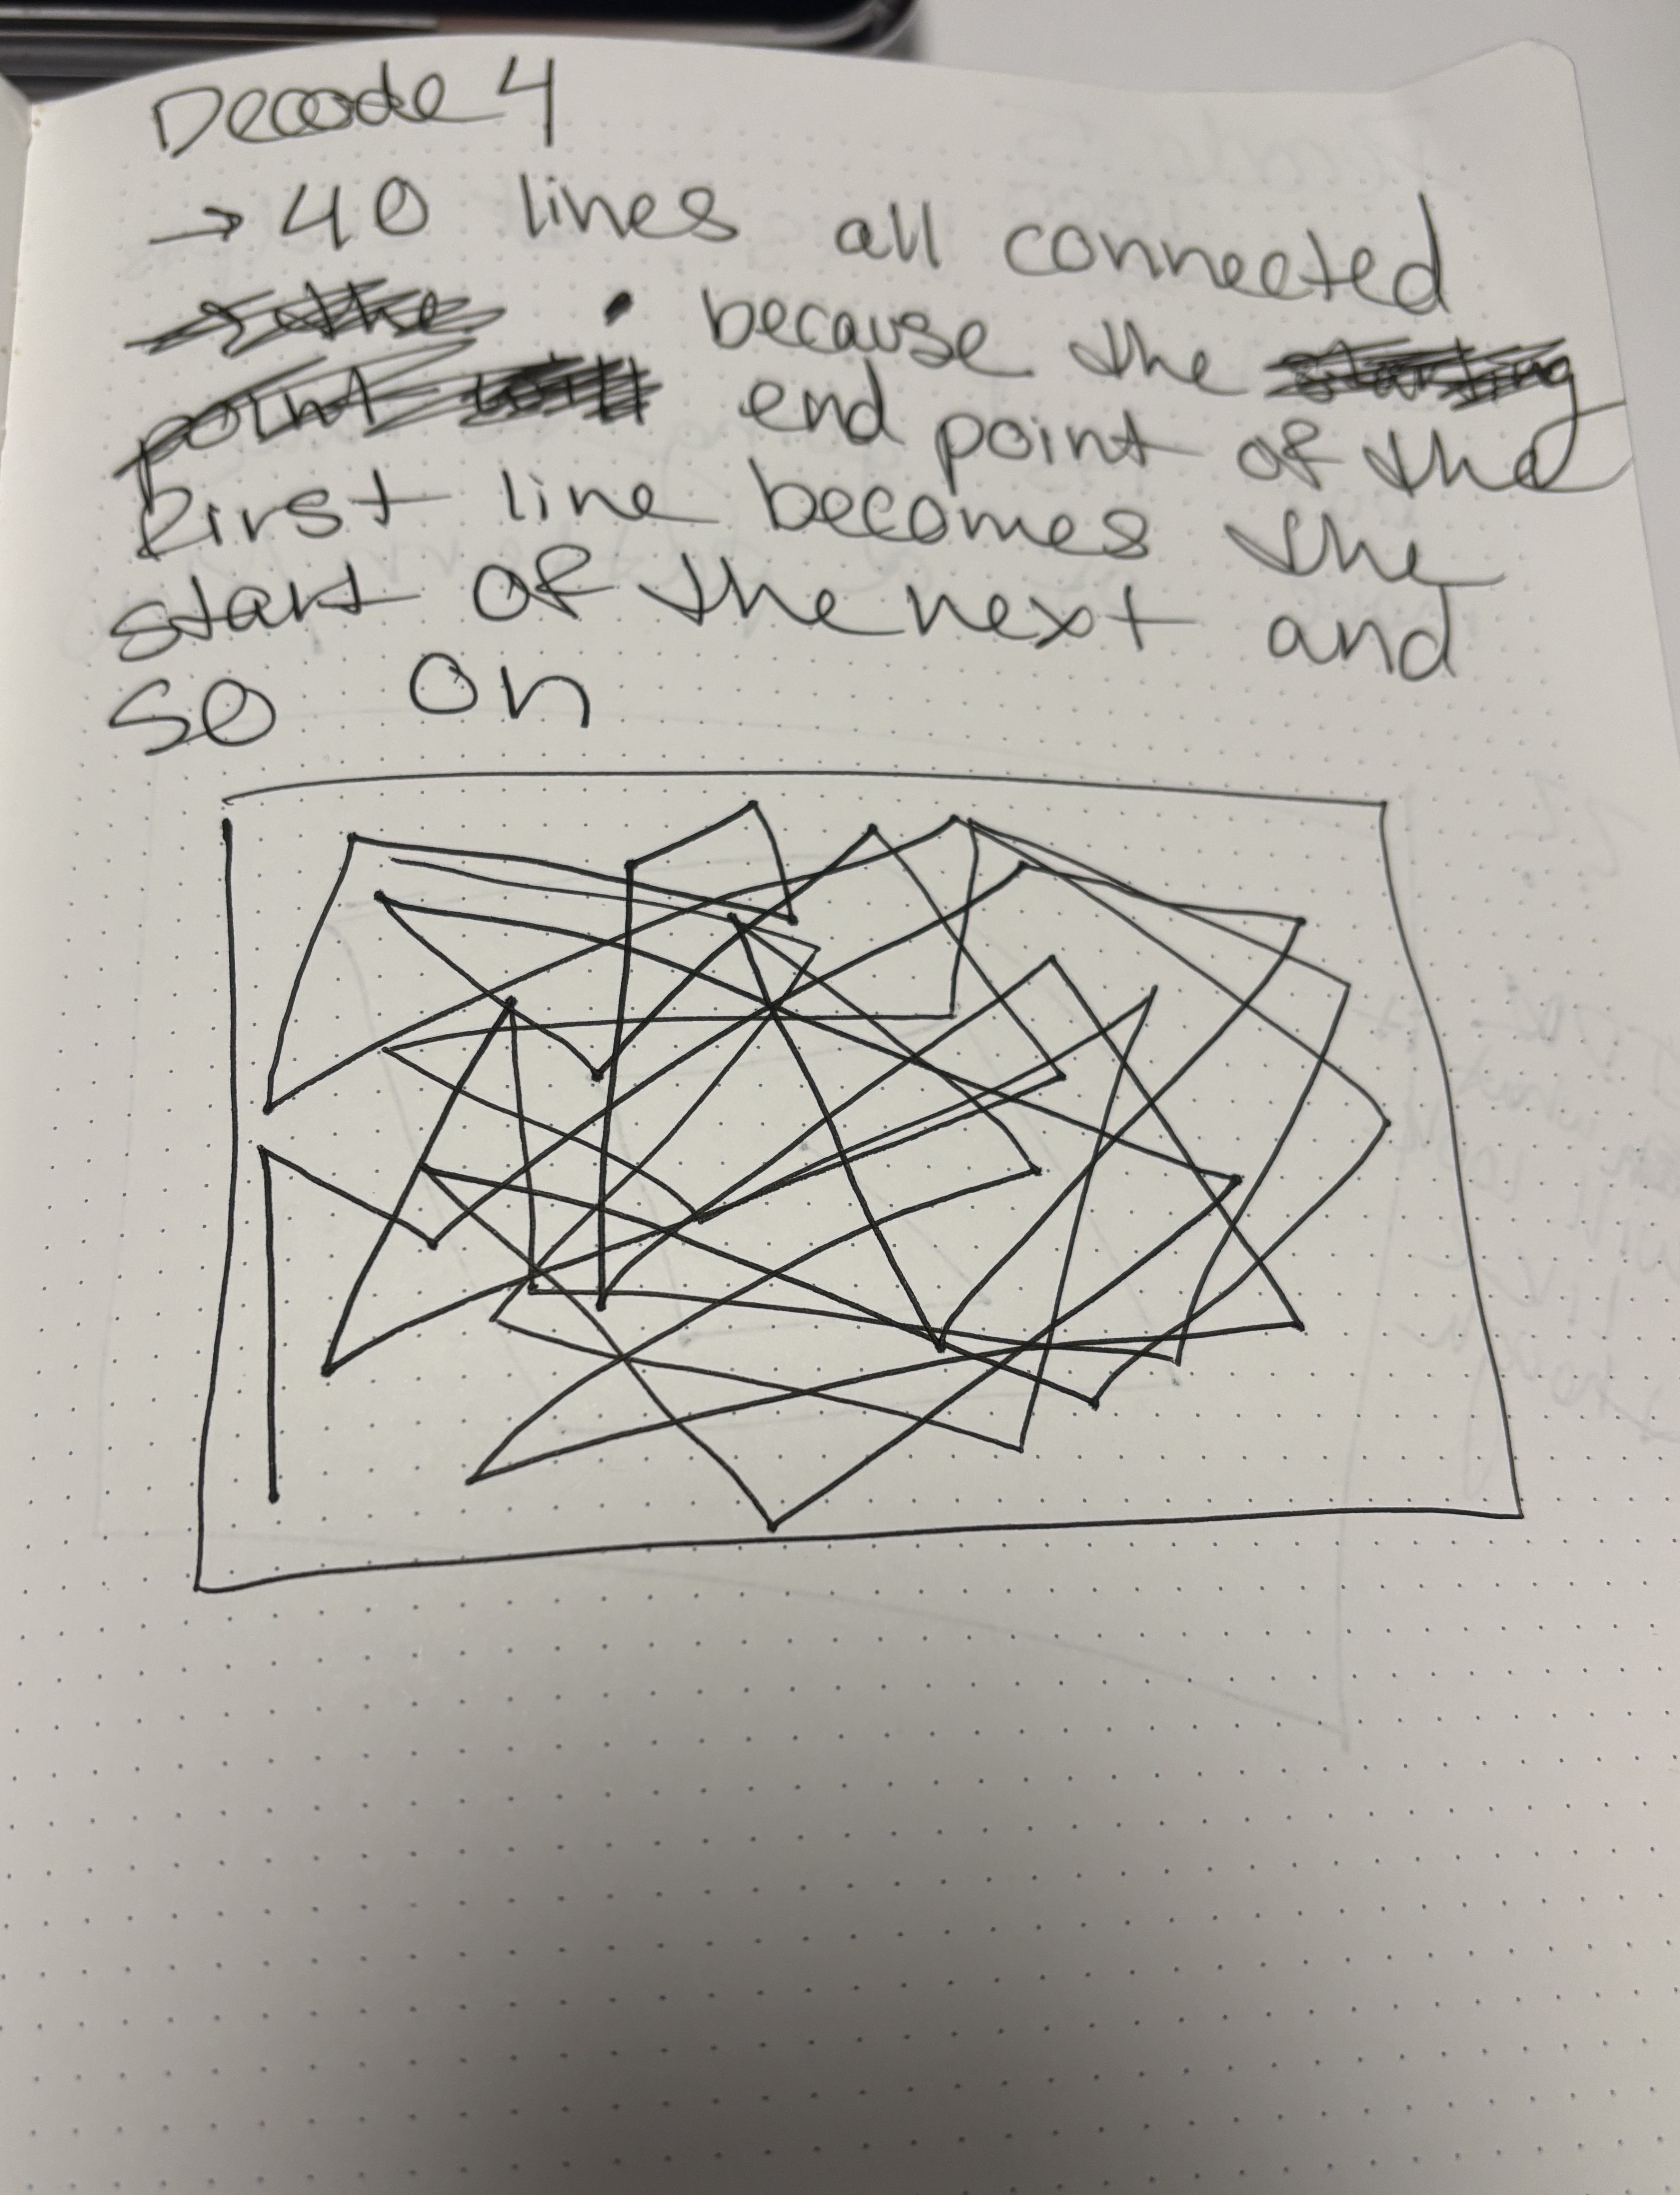 Decode 4
→ 40 lines all connected
because the
end point of the
first line becomes the
start of the next and
so on